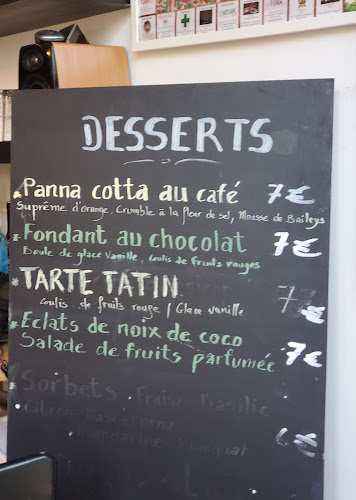 DESSERTS
* Panna cotta au café 7€
Suprême d'orange, Crumble à la fleur de sel, Mousse de Baileys
* Fondant au chocolat 7€
Boule de glace Vanille, Coulis de fruits rouges
* TARTE TATIN 7€
Coulis de fruits rouge / Glace vanille
* Eclats de noix de coco
Salade de fruits parfumée 7€
* Sorbets Fraise Basilic
Citron Mascarpone
Mandarine Kumquat 6€